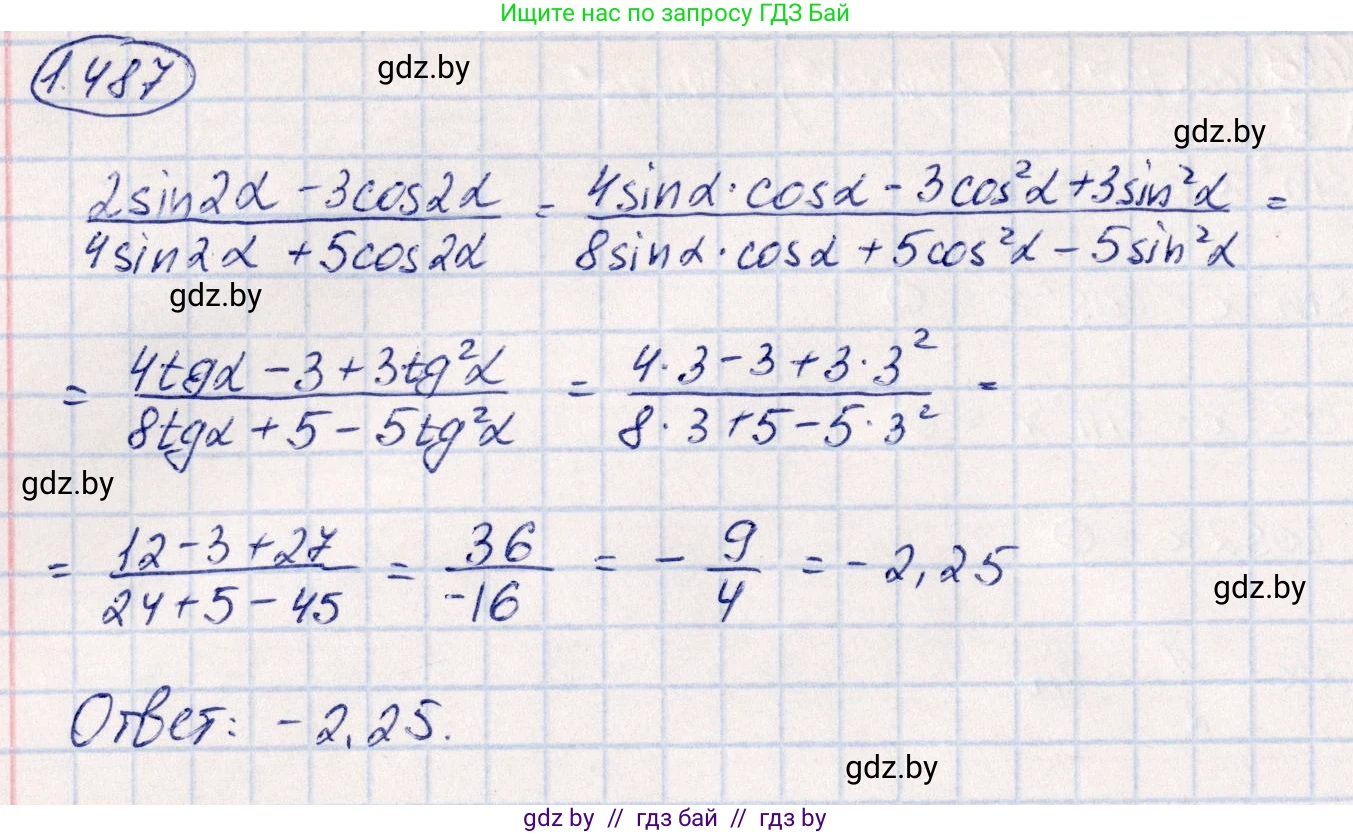 Ищите нас по запросу ГДЗ Бай
1.487
gdz.by
gdz.by
(2sin2α - 3cos2α)/(4sin2α + 5cos2α) = (4sinα·cosα - 3cos²α + 3sin²α)/(8sinα·cosα + 5cos²α - 5sin²α) =
gdz.by
= (4tgα - 3 + 3tg²α)/(8tgα + 5 - 5tg²α) = (4·3 - 3 + 3·3²)/(8·3 + 5 - 5·3²) =
gdz.by
= (12 - 3 + 27)/(24 + 5 - 45) = 36/-16 = - 9/4 = - 2,25
gdz.by
Ответ: - 2,25.
gdz.by
gdz by // гдз бай // гдз by